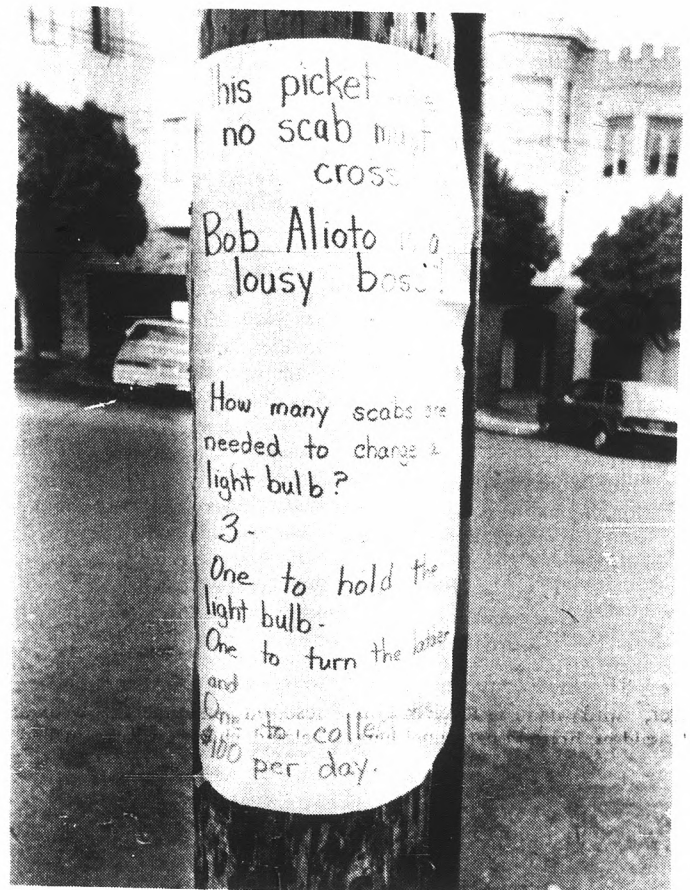 his picket line
no scab must
cross
Bob Alioto is a
lousy boss!
How many scabs are
needed to change a
light bulb?
3-
One to hold the
light bulb-
One to turn the ladder
and
One to colle
$100 per day.